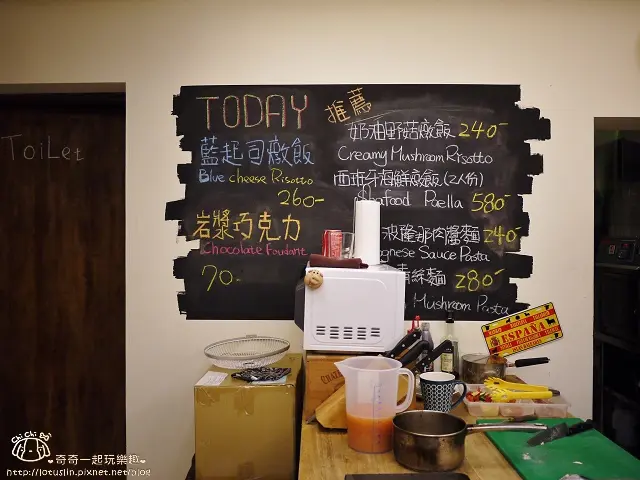 ToiLet
TODAY 推薦
藍起司燉飯
Blue cheese Risotto
260-
岩漿巧克力
Chocolate Foudant
70-
奶油野菇燉飯 240-
Creamy Mushroom Risotto
西班牙海鮮燉飯(2人份)
Seafood Paella 580-
波隆那肉醬麵 240-
gnese Sauce Pasta
青絲麵 280-
Mushroom Pasta
ESPAÑA
奇奇一起玩樂趣
http://lotuslin.pixnet.net/blog